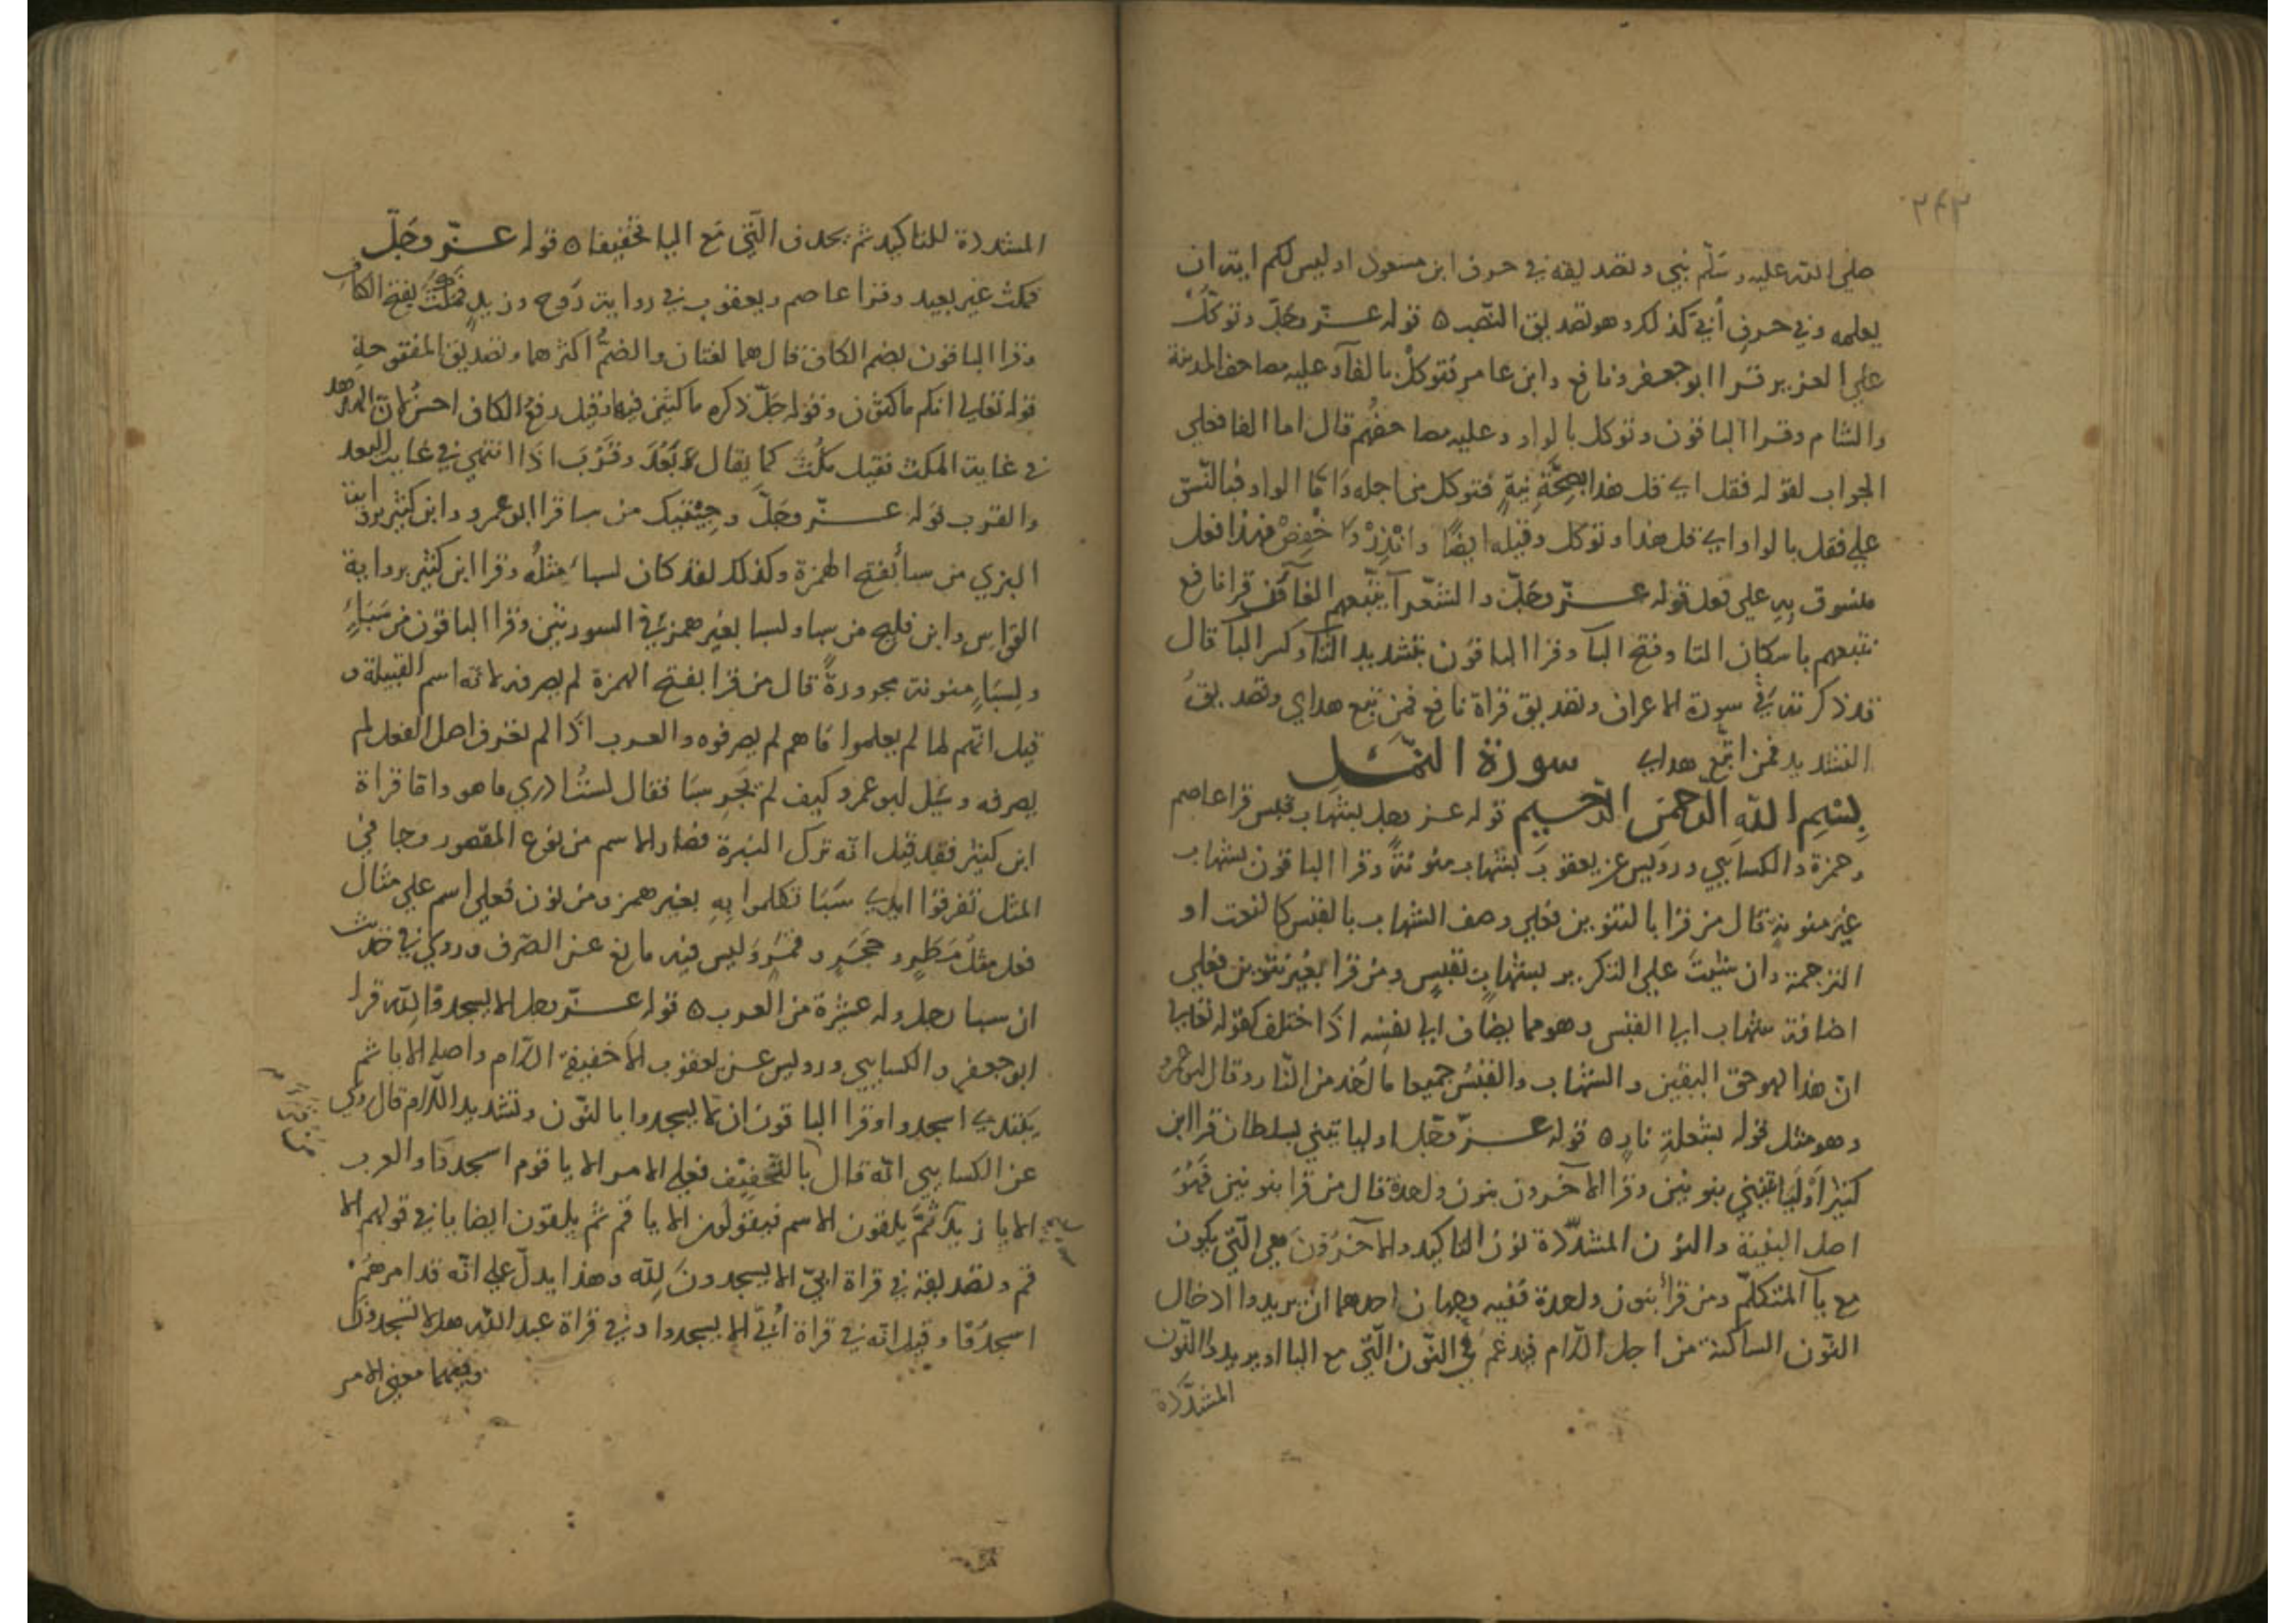 ٢٤٣
صلى الله عليه وسلم نبي وتصديقه في حرف ابن مسعود اوليس لكم اية ان
يعلمه وفي حرف أبي كذلك وهو تصديق النصب ٥ قوله عز وجل وتوكل
على العزيز قرا ابو جعفر ونافع وابن عامر فتوكل بالفآ وعليه مصاحف المدينة
والشام وقرا الباقون وتوكل بالواو وعليه مصاحفهم قال اما الفا فعلى
الجواب لقوله فقل اي قل هذا بصحة نية فتوكل من اجله واما الواو فبالنسق
على فقل بالواو اي قل هذا وتوكل وقبله ايضًا وانذر واخفض فهذا فعل
منسوق به على فعل قوله عز وجل والشعرآ يتبعهم الغاوون قرا نافع
يتبعهم باسكان التا وفتح البآ وقرا الباقون بتشديد التآ وكسر البآ قال
قد ذكرته في سورة الاعراف وتصديق قراة نافع فمن تبع هداي وتصديق
التشديد فمن اتبع هداي سورة النمل
بسم الله الرحمن الرحيم قوله عز وجل بشهاب قبس قرا عاصم
وحمزة والكسايي ورويس عن يعقوب بشهاب منونةً وقرا الباقون بشهاب
غير منونةٍ قال من قرا بالتنوين فعلى وصف الشهاب بالقبس كالنعت او
الترجمة وان شيت على التكرير بشهابٍ بقبسٍ ومن قرا بغير تنوين فعلى
اضافة شهاب الى القبس وهو مما يضاف الى نفسه اذا اختلف كقوله تعالى
ان هذا لهو حق اليقين والشهاب والقبس جميعا ما اخذ من النار وقال ابو عمرو
وهو مثل قوله بشعلةِ نارٍ ٥ قوله عز وجل اوليا تيني بسلطان قرا ابن
كثير اوليا تينني بنونين وقرا الآخرون بنون واحدة قال من قرا بنونين فهو
اصل البنية والنون المشددة نون التاكيد والآخرون هي التي يكون
مع يآ المتكلم ومن قرأ بنون واحدة ففيه وجهان احدهما ان يريدوا ادخال
النون الساكنة من اجل اللام فيدغم في النون التي مع اليا او يريدوا النون
المشددة
المشددة للتاكيد ثم يحذف التي مع اليا تخفيفا ٥ قوله عز وجل
فمكث غير بعيد وقرا عاصم ويعقوب في رواية روح وزيد فمكث بفتح الكاف
وقرا الباقون بضم الكاف قال هما لغتان والضم اكثرهما وتصديق المفتوحة
قوله تعالى انكم ماكثون وقوله جل ذكره ماكثين فيها وقيل رفع الكاف احسن لان الهدهد
في غاية المكث فقيل مكُث كما يقال بَعُدَ وقَرُبَ اذا انتهى في غاية البعد
والقرب قوله عز وجل وجيتك من سبا قرا ابو عمرو وابن كثير برواية
البزي من سبأ بفتح الهمزة وكذلك لقد كان لسبأ مثله وقرا ابن كثير برواية
القواس وابن فليح من سبا ولسبا بغير همز في السورتين وقرا الباقون من سَبَإٍ
ولسَبَإٍ منونة مجرورةً قال من قرا بفتح الهمزة لم يصرفه لانه اسم القبيلة و
قيل انهم لما لم يعلموا ما هم لم يصرفوه والعرب اذا لم تعرف اصل الفعل لم
يصرفه وسيل ابو عمرو كيف لم تجر سبا فقال لست ادري ما هو واما قراة
ابن كثير فقد قيل انه ترك النبرة فصار الاسم من نوع المقصور وجا في
المثل تفرقوا ايدي سَبَا تكلموا به بغير همز ومن نون فعلى اسم على مثال
فعل مثل مَطَرٍ وحَجَرٍ وقَمَرٍ وليس فيه مانع عن الصرف وروي في حديث
ان سبا رجل وله عشرة من العرب ٥ قوله عز وجل الا يسجدوا لله قرا
ابو جعفر والكسايي ورويس عن يعقوب الا خفيفة اللام واصله الا يا ثم
يبتدي اسجدوا وقرا الباقون ان لا يسجدوا بالنون وتشديد اللام قال روي
عن الكسايي انه قال بالتخفيف فعلى الامر الا يا قوم اسجدوا والعرب
الا يا زيد ثم يلقون الاسم فيقولون الا يا قم ثم يلقون ايضا يا في قولهم الا
قم وتصديقه في قراة ابي الا يسجدون لله وهذا يدل على انه قد امرهم
اسجدوا وقيل انه في قراة أبي الا يسجدوا وفي قراة عبد الله هلا تسجدون
وفيهما معنى الامر